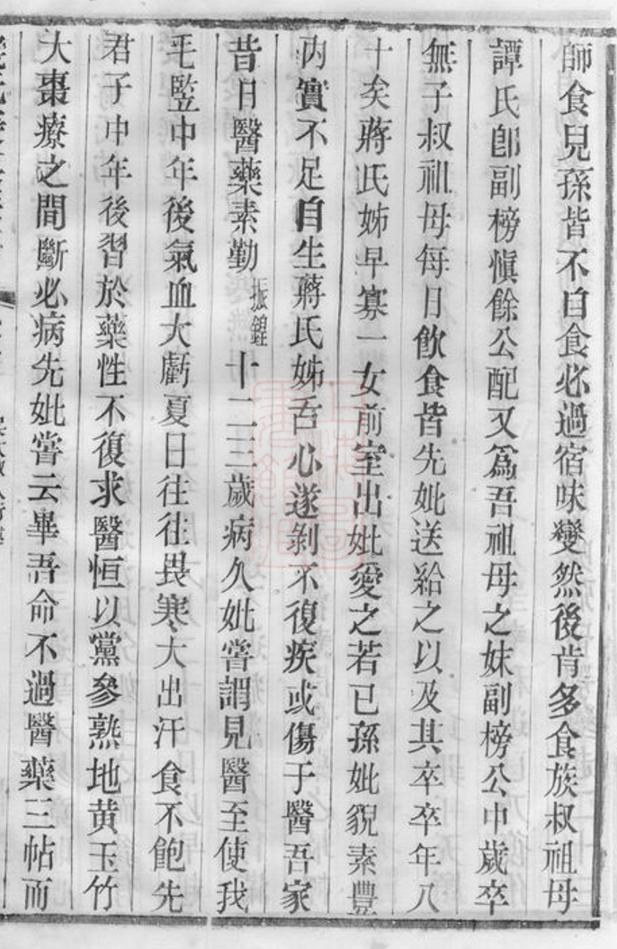 師食兒孫皆不白食必過宿味變然後肯多食族叔祖母
譚氏卽副榜愼餘公配又爲吾祖母之妹副榜公中歲卒
無子叔祖母每日飮食皆先妣送給之以及其卒卒年八
十矣蔣氏姊早寡一女前室出妣愛之若已孫妣貌素豐
內實不足自生蔣氏姊吾心遂剝不復疾或傷于醫吾家
昔日醫藥素勤振鍠十二三歲病久妣嘗謂兒醫至使我
毛豎中年後氣血大虧夏日往往畏寒大出汗食不飽先
君子中年後習於藥性不復求醫恒以黨參熟地黃玉竹
大棗療之間斷必病先妣嘗云畢吾命不過醫藥三帖而